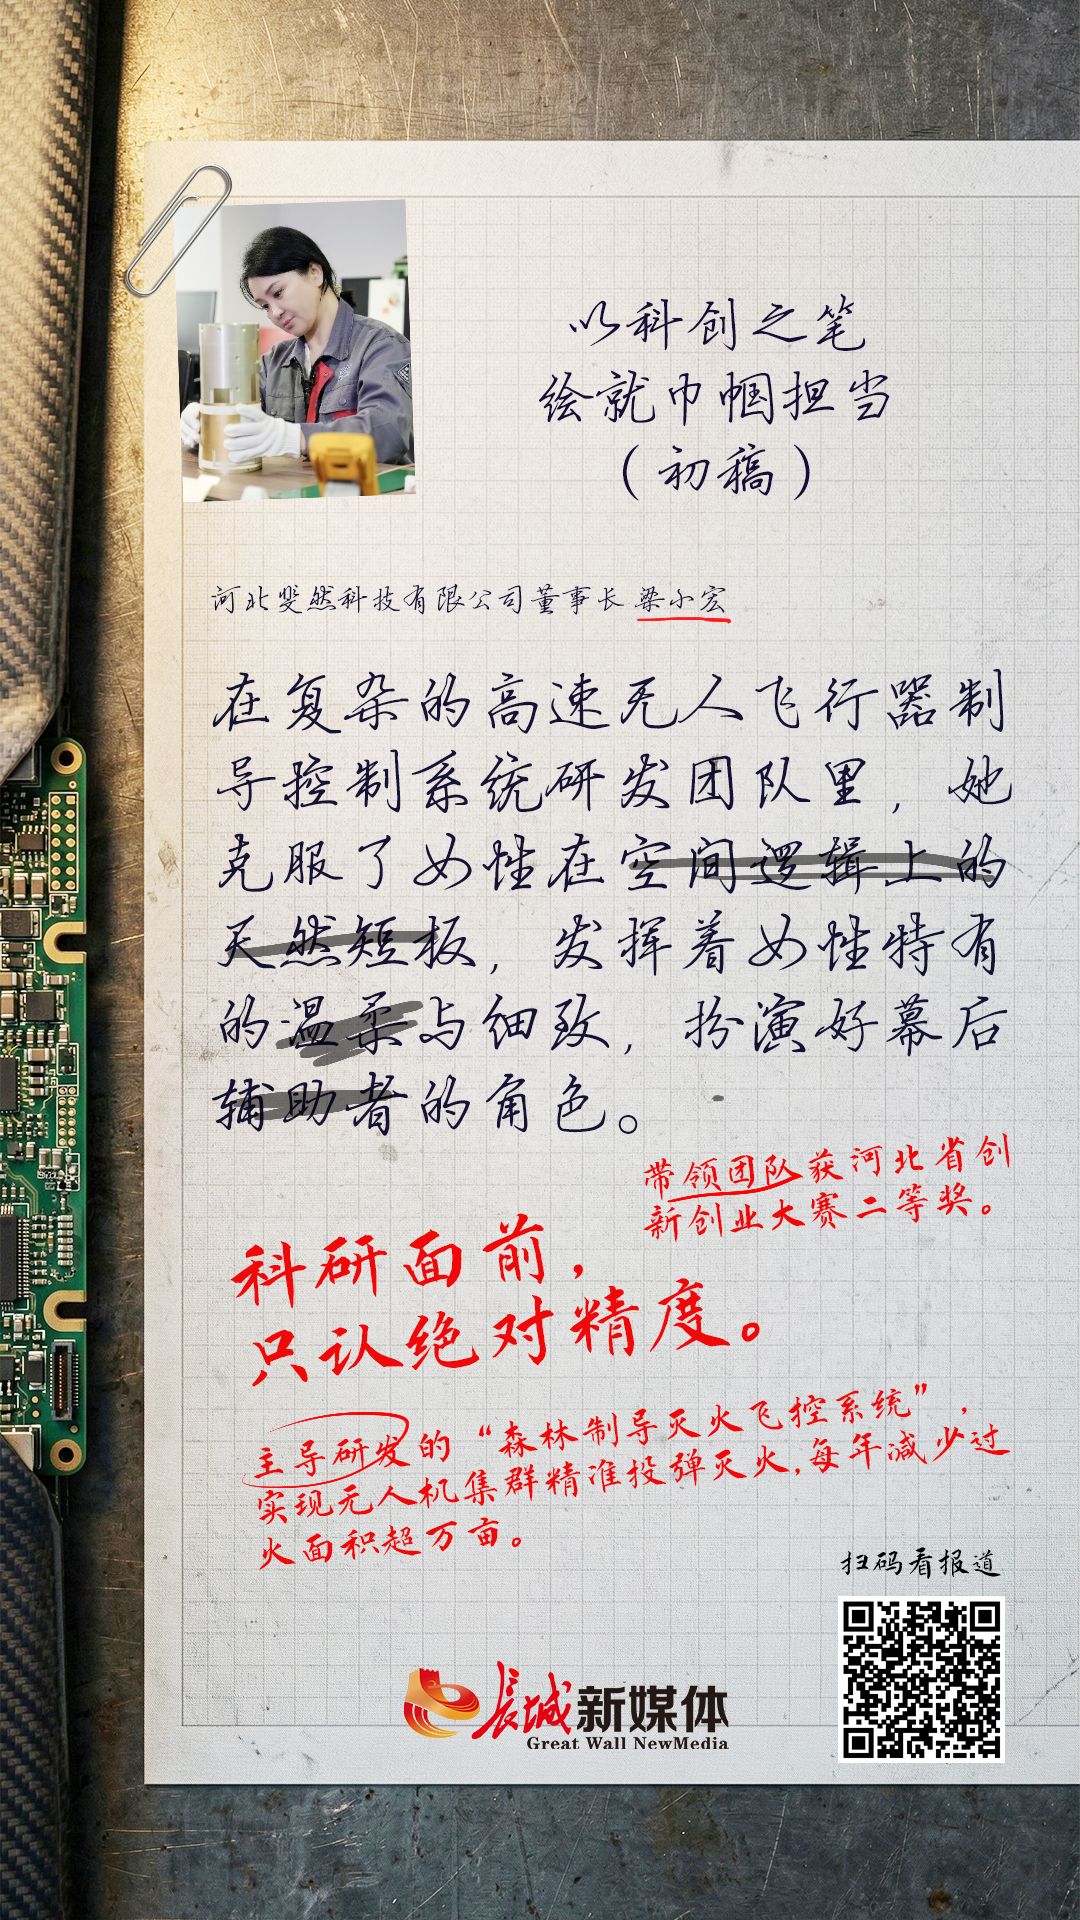 以科创之笔
绘就巾帼担当
（初稿）
河北斐然科技有限公司董事长 梁小宏
在复杂的高速无人飞行器制
导控制系统研发团队里，她
克服了女性在空间逻辑上的
天然短板，发挥着女性特有
的温柔与细致，扮演好幕后
辅助者的角色。
带领团队获河北省创
新创业大赛二等奖。
科研面前，
只认绝对精度。
主导研发的“森林制导灭火飞控系统”，
实现无人机集群精准投弹灭火，每年减少过
火面积超万亩。
扫码看报道
长城新媒体
Great Wall NewMedia